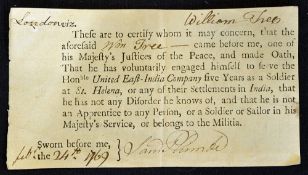 London viz. William Tree
These are to certify whom it may concern, that the
aforesaid Wm Tree — came before me, one of
his Majesty's Justices of the Peace, and made Oath,
That he has voluntarily engaged himself to serve the
Honble United East-India Company five Years as a Soldier
at St. Helena, or any of their Settlements in India, that
he has not any Disorder he knows of, and that he is not
an Apprentice to any Person, or a Soldier or Sailor in his
Majesty's Service, or belongs to the Militia.
Sworn before me,
the 24th 1769